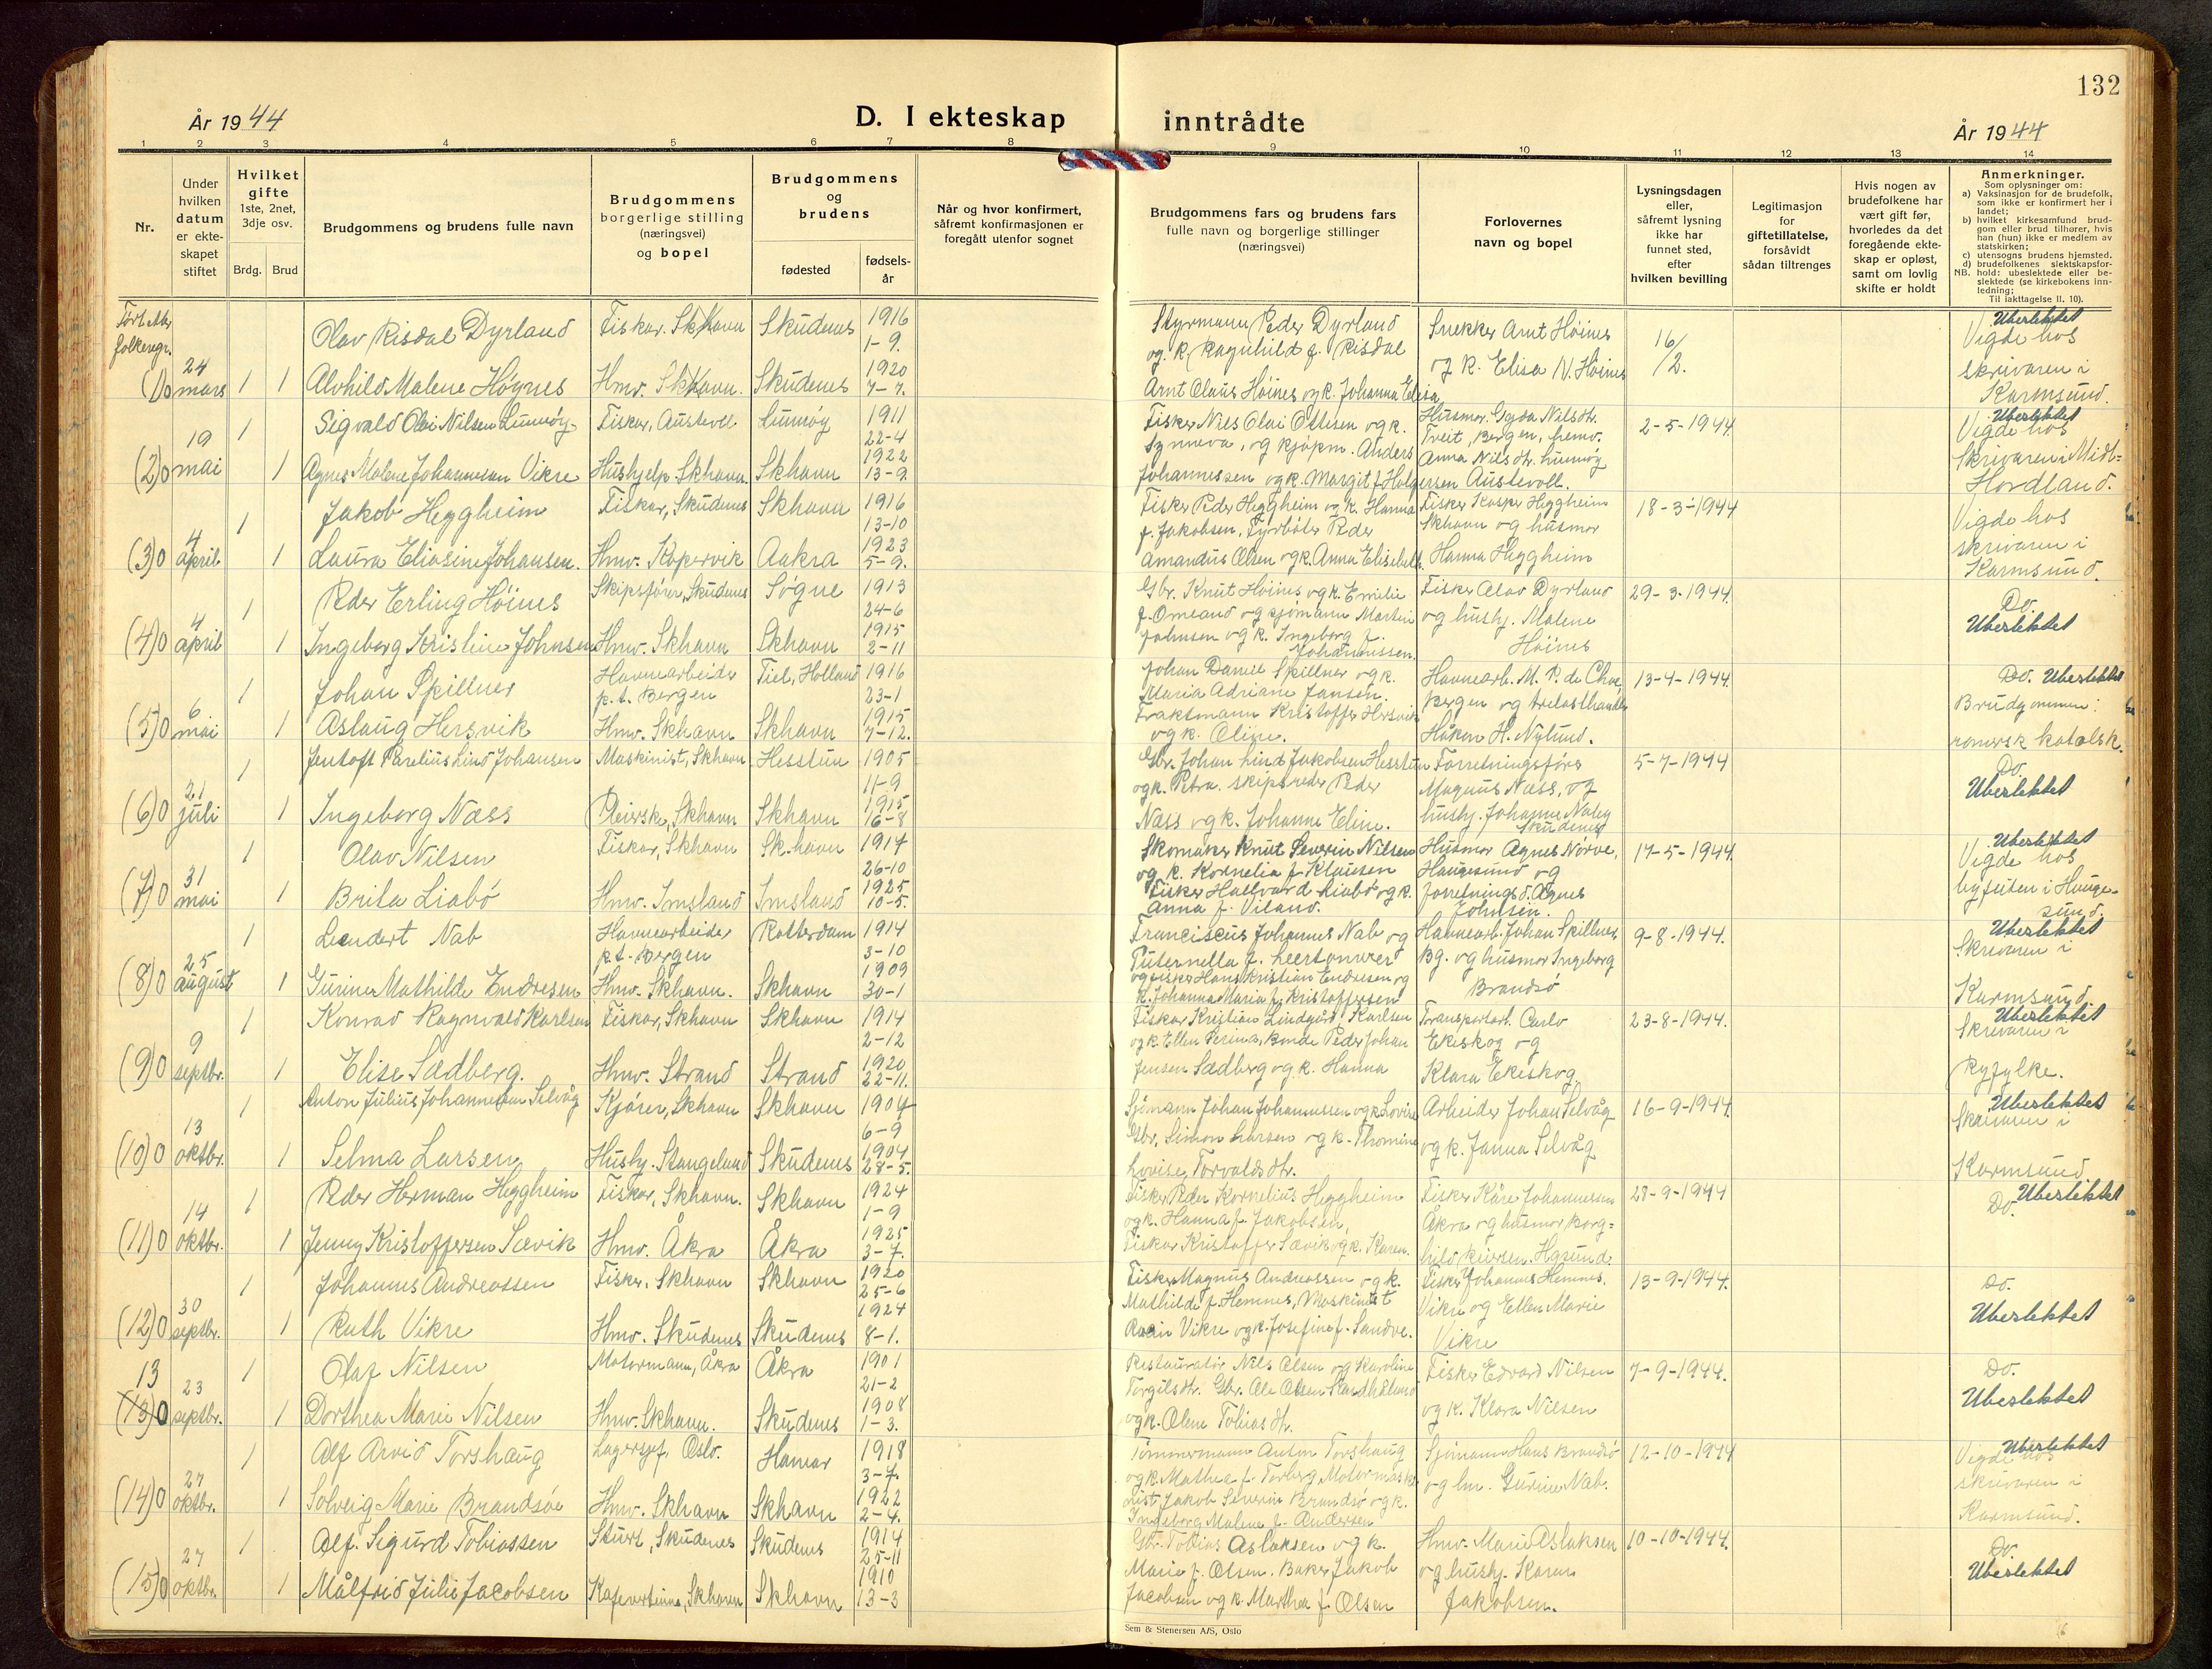 132
År 1944
D. I ekteskap inntrådte
År 1944
1 2 3 4 5 6 7 8 9 10 11 12 13 14
Nr.
Under
hvilken
datum
er ekte-
skapet
stiftet
Hvilket
gifte
1ste, 2net,
3dje osv.
Brdg. Brud
Brudgommens og brudens fulle navn
Brudgommens
borgerlige stilling
(næringsvei)
og bopel
Brudgommens
og
brudens
fødested
fødsels-
år
Når og hvor konfirmert,
såfremt konfirmasjonen er
foregått utenfor sognet
Brudgommens fars og brudens fars
fulle navn og borgerlige stillinger
(næringsvei)
Forlovernes
navn og bopel
Lysningsdagen
eller,
såfremt lysning
ikke har
funnet sted,
efter
hvilken bevilling
Legitimasjon
for
giftetillatelse,
forsåvidt
sådan tiltrenges
Hvis nogen av
brudefolkene har
vært gift før,
hvorledes da det
foregående ekte-
skap er opløst,
samt om lovlig
skifte er holdt
Anmerkninger.
Som oplysninger om:
a) Vaksinasjon for de brudefolk,
som ikke er konfirmert her i
landet;
b) hvilket kirkesamfund brud-
gom eller brud tilhører, hvis
han (hun) ikke er medlem av
statskirken;
c) utensogns brudens hjemsted.
d) brudefolkenes slektskapsfor-
NB. hold: ubeslektede eller be-
slektede (se kirkebokens inn-
ledning;
Til iakttagelse II. 10).
folkeregr.
Olav Risdal Dyrland Fisker. Skhavn Skudenes 1916 1-9.
(1)0 24 mars 1 1 Alvhild Malene Høynes Hmv. Skhavn. Skudenes 1920 7-7.
Styrmann Peder Dyrland
og k. Ragnhild f. Risdal
Arnt Olaus Høines og k. Johanna Elisa
Snekker Arnt Høines
og k. Elisa N. Høines
16/2.
Ubeslektet
Vigde hos
skrivaren i
Karmsund.
1 Sigvald Olai Nilsen Lunnøy Fisker, Austevoll Lunnøy 1911 22-4
(2)0 19 mai 1 Agnes Malene Johannessen Vikre Hushjelp. Skhavn. Skhavn 1922 13-9.
Fisker Nils Olai Ottesen og k.
Synneva, og kjøpm. Anders
Johannessen og k. Margit f. Holgersen
Husmor. Gyda Nilsdtr.
Treit, Bergen, hemv.
Anna Nilsdtr. Lunnøy
Austevoll.
2-5-1944.
Ubeslektet
Vigde hos
Skrivaren i Midt-
Hordland.
1 Jakob Heggheim Fisker, Skudenes Skhavn 1916 13-10
(3)0 4 april 1 Laura Eliasine Johansen. Hmv. Kopervik Aakra 1923 5-9.
Fisker Peder Heggheim og k. Hanna
f. Jakobsen, Fyrbøter Peder
Amandus Olsen og k. Anna Elisebeth.
Fisker Kasper Heggheim
Skhavn og husmor
Hanna Heggheim
18-3-1944
Vigde hos
skrivaren i
Karmsund.
1 Peder Erling Høines Skipsfører, Skudenes Søgne 1913 24-6
(4)0 4 april 1 Ingeborg Kristine Johnsen Hmv. Skhavn Skhavn 1915 2-11
Gbr. Knut Høines og k. Emilie
f. Omland og sjømann Martin
Johnsen og k. Ingeborg f.
Johannessen.
Fisker Olav Dyrland
og hushj. Malene
Høines
29-3-1944.
Do.
Ubeslektet
1 Johan Spillner Havnearbeider p.t. Bergen Tiel, Holland 1916 23-1
(5)0 6 mai 1 Aslaug Hersvik Hmv. Skhavn Skhavn 1915 7-12.
Johan Daniel Spillner og k.
Maria Adriane Jansen.
Fraktsmann Kristoffer Hersvik
og k. Oline.
Havnearb. M. P. de
Bergen og trelasthandler
Håkon H. Nylund.
13-4-1944.
Do. Ubeslektet
Brudgommen:
romersk katolsk.
1 Jentoft Parelius Lind Johansen Maskinist, Skhavn Hesstun 1905 11-9
(6)0 21 juli 1 Ingeborg Næss Pleierske, Skhavn Skhavn 1915 16-8
Gbr. Johan Lind Jakobsen Hesstun
og k. Petra. Skipsreder Peder
Næss og k. Johanne Eline.
Forretningsførs
Magnus Næss, og
hushj. Johanne
Skudenes
5-7-1944
Do.
Ubeslektet
1 Olav Nilsen Fisker, Skhavn Sk.havn 1914 26-10
(7)0 31 mai 1 Brita Liabø Hmv. Imsland Imsland 1925 10-5.
Skomaker Knut Severin Nilsen
og k. Kornelia f. Klausen
Fisker Hallvard Liabø og k.
Anna f. Viland.
Husmor Agnes Nørve,
Haugesund og
forretningsd. Agnes
Johnsen.
17-5-1944.
Ubeslektet
Vigde hos
byfuten i Hauge-
sund.
1 Leendert Nab Havnearbeider p.t. Bergen Rotterdam 1914 3-10
(8)0 25 august 1 Gurine Mathilde Endresen Hmv. Skhavn. Skhavn 1909 30-1
Franciscus Johannes Nab og
Puternella f. Leertouwer
og fisker Hans Kristian Endresen og
k. Johanna Maria f. Kristoffersen
Havnearb. Johan Spillner
Bg. og husmor Ingeborg
Brandsø
9-8-1944.
Ubeslektet
Skrivaren i
Karmsund.
1 Konrad Ragnvald Karlsen Fisker, Skhavn Skhavn 1914 2-12
(9)0 9 septbr. 1 Elise Sædberg. Hmv. Strand Strand 1920 22-11.
Fisker Kristian Lindgård Karlsen
og k. Ellen Serina, Bonde Peder Johan
Jensen Sædberg og k. Hanna
Transportarb. Carlo
Ekeskog og
Klara Ekeskog
23-8-1944.
Ubeslektet
Skrivaren i
Ryfylke.
1 Anton Julius Johannessen Selvåg Kjører, Skhavn Skhavn 1904 6-9
(10)0 13 oktbr. 1 Selma Larsen Hushj. Stangeland Skudenes 1904 28-5.
Sjømann Johan Johannessen og k. Lovise
Gbr. Simon Larsen og k. Thomine
Lovise Torvaldsdtr.
Arbeider Johan Selvåg
og k. Janna Selvåg
16-9-1944.
Ubeslektet
Skrivaren i
Karmsund
1 Peder Herman Heggheim Fisker, Skhavn. Skhavn 1924 1-9
(11)0 14 oktbr. 1 Jenny Kristoffersen Sævik Hmv. Åkra Åkra 1925 3-7.
Fisker Peder Kornelius Heggheim
og k. Hanna f. Jakobsen,
Fisker Kristoffer Sævik og k. Karen.
Fisker Kåre Johannessen
Åkra og husmor Borg-
hild Hgsund.
28-9-1944
Ubeslektet
Do.
1 Johannes Andreassen Fisker, Skhavn Skhavn 1920 25-6
(12)0 30 septbr. 1 Ruth Vikre Hmv. Skudenes Skudenes 1924 8-1.
Fisker Magnus Andreassen og k.
Mathilde f. Hemnes, Maskinist
Vikre og k. Josefine f. Sandve.
Fisker Johannes Hemnes.
Vikre og Ellen Marie
Vikre
13-9-1944.
Do.
Ubeslektet
13 1 Olaf Nilsen Motormann, Åkra Åkra 1901 21-2
(13)0 23 septbr. 1 Dorthea Marie Nilsen Hmv. Skhavn. Skudenes 1908 1-3.
Restauratør Nils Olsen og Karoline
Torgilsdtr. Gbr. Ole Olsen Sandhåland
og k. Olene Tobiasdtr.
Fisker Edvard Nilsen
og k. Klara Nilsen
7-9-1944.
Do.
Ubeslektet
1 Alf Arvid Torshaug Lagersjef, Oslo. Hamar 1918 3-7.
(14)0 27 oktbr. 1 Solveig Marie Brandsøe Hmv. Skhavn Skhavn 1922 2-4.
Tømmermann Anton Torshaug
og k. Mathea f. Torberg Motormaski-
nist Jakob Severin Brandsø og k.
Ingeborg Malene f. Andersen
Sjømann Hans Brandsø
og hm. Gurine Nab.
12-10-1944
Ubeslektet
Vigde hos
skrivaren i
Karmsund.
1 Alf. Sigurd Tobiassen Stuert, Skudenes Skudenes 1914 25-11
(15)0 27 oktbr. 1 Målfrid Julie Jacobsen Kafevertinne, Skhavn Skhavn 1910 13-3
Gbr. Tobias Aslaksen og k.
Marie f. Olsen. Baker Jakob
Jacobsen og k. Marthea f. Olsen
Hmv. Marie Aslaksen
og hushj. Karen
Jakobsen.
10-10-1944.
Do.
Ubeslektet
Sem & Stenersen A/S, Oslo